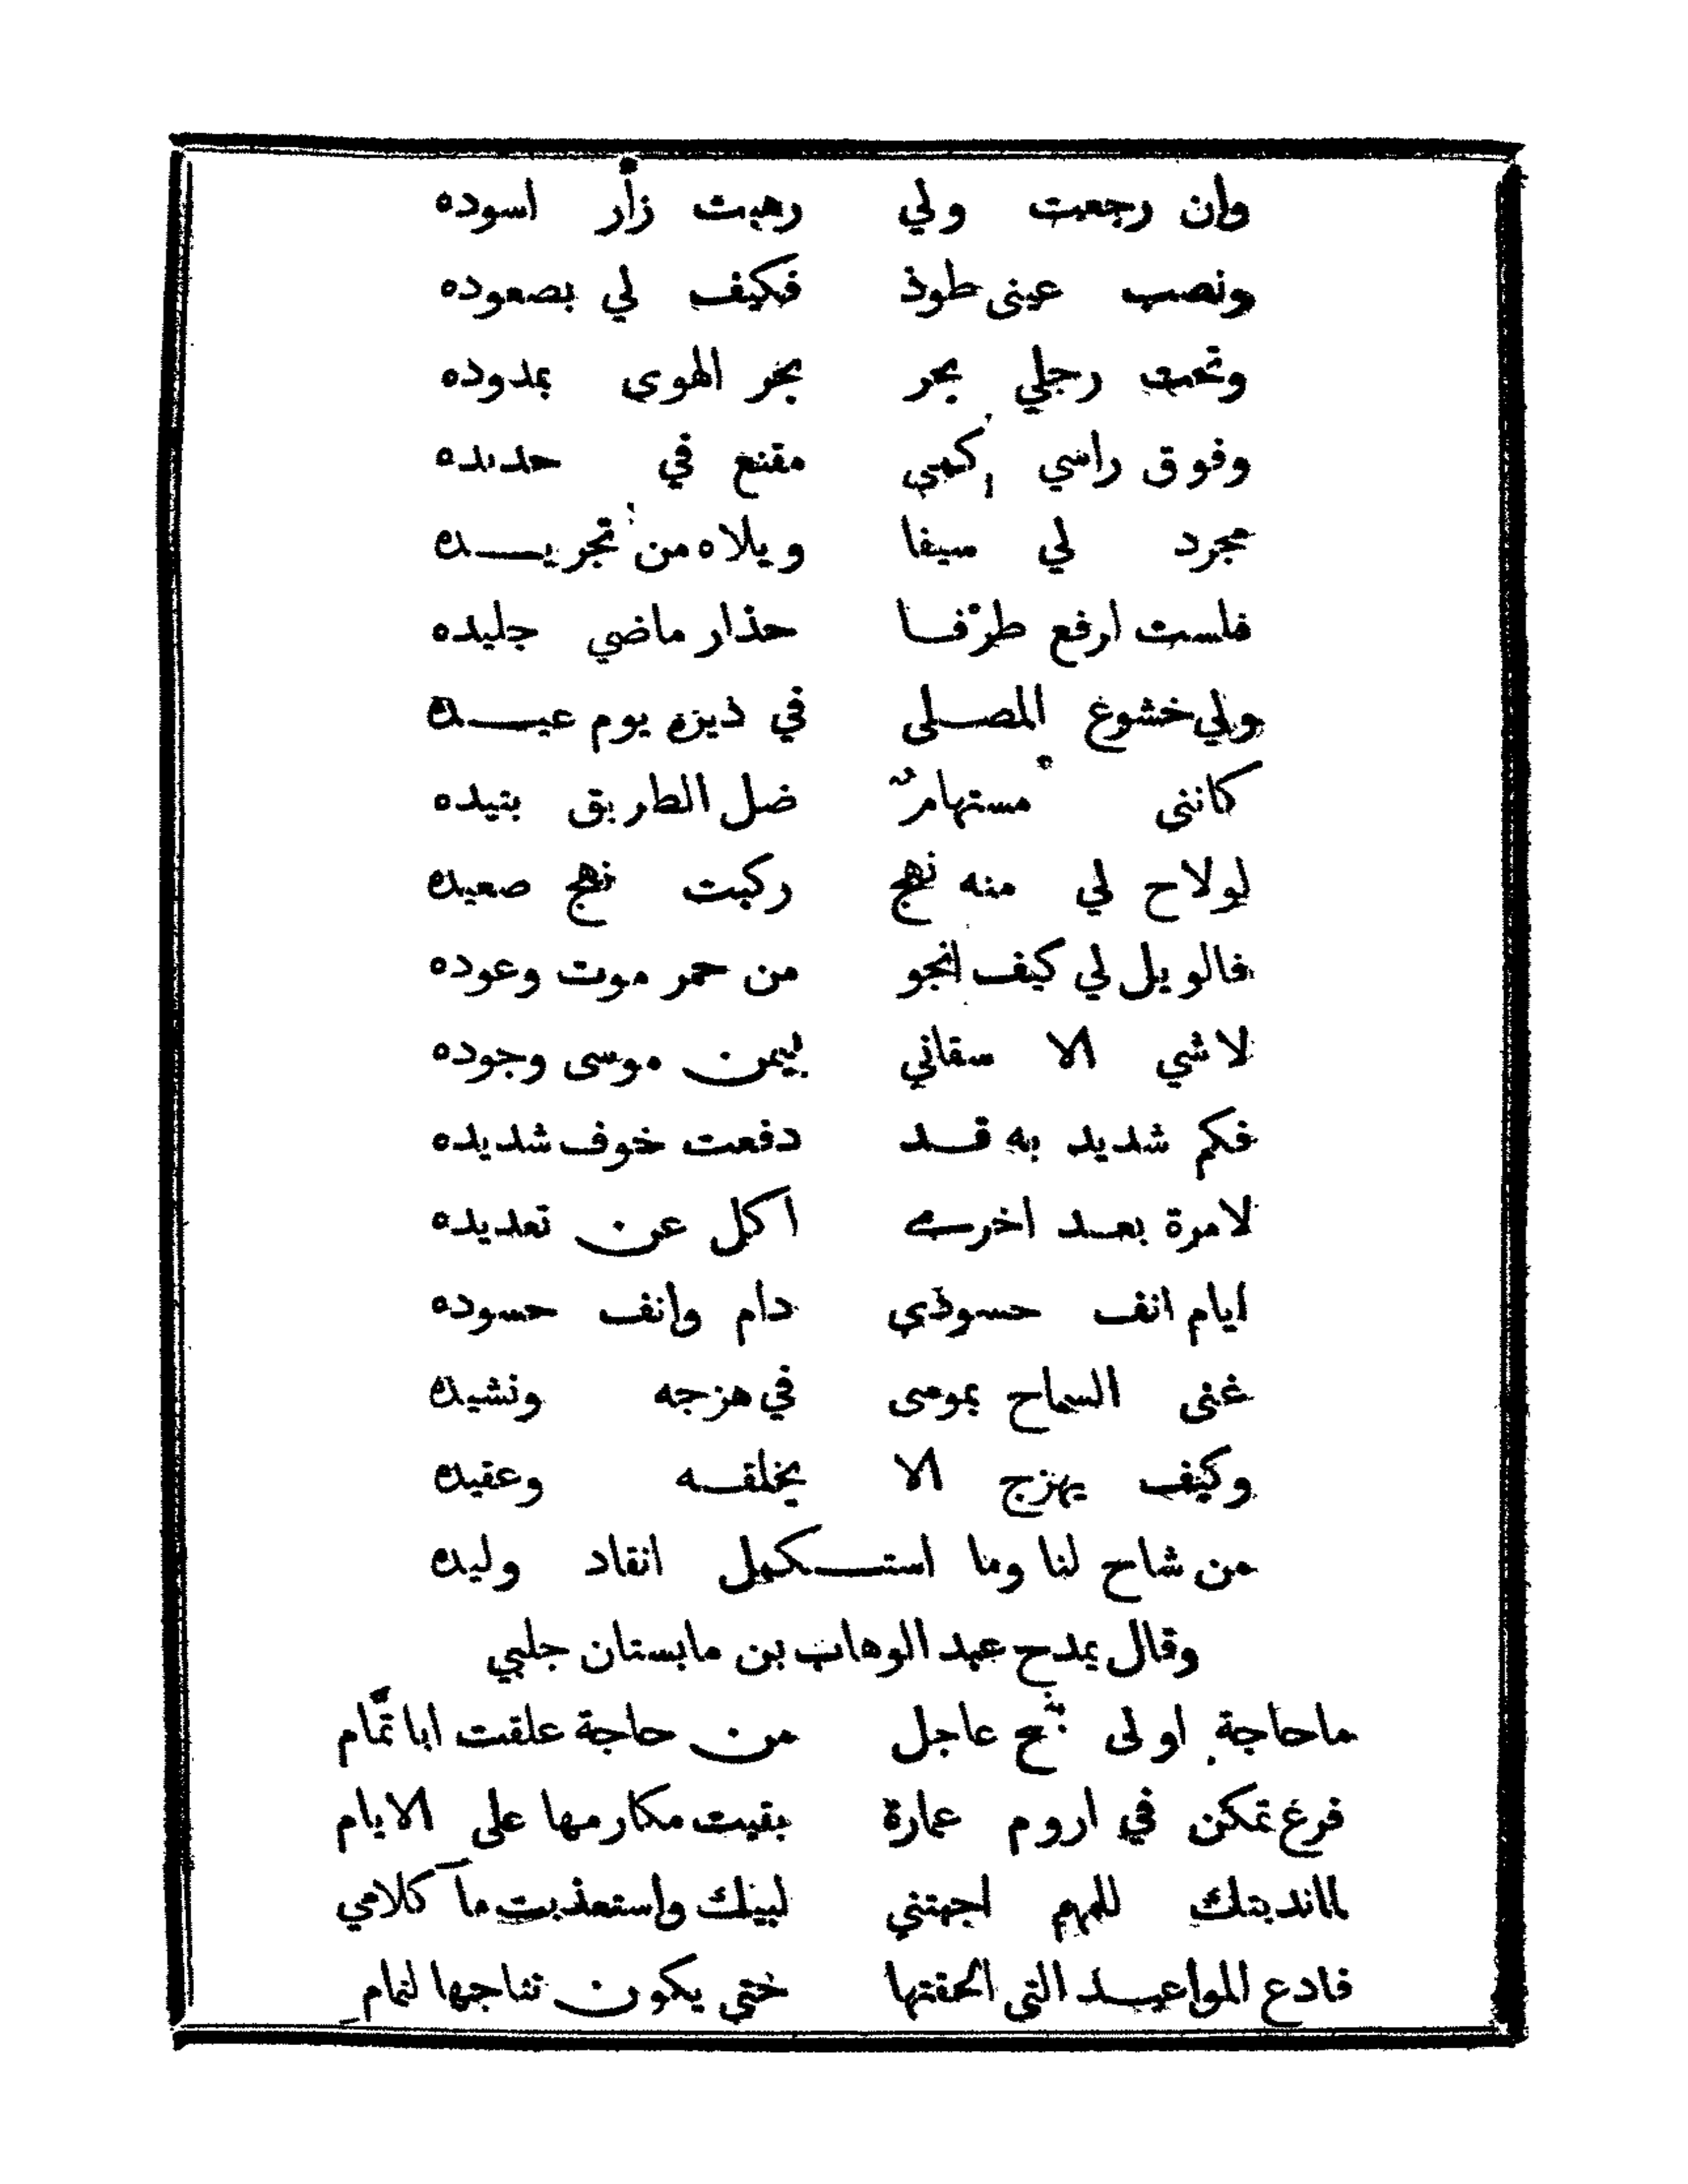 وان رجعت ولي رهبت زأر اسوده
ونصب عينى طوذ فكيف لي بصعوده
وتحت رجلي بحر بحر الهوى بمدوده
وفوق راسي كمي مقنع في حديده
مجرد لي سيفا ويلاه من تجريده
فلست ارفع طرْفا حذار ماضي جليده
ولي خشوع المصلى في ديره يوم عيده
كاننى مستهامٌ ضل الطريق بتيده
لولاح لي منه نهج ركبت نهج صعيده
فالويل لي كيف انجو من حمر موت وعوده
لاشي الا سقاني بيمن موسى وجوده
فكم شديد به قد دفعت خوف شديده
لامرة بعد اخرى اكل عن تعديده
ايام انف حسوذي دام وانف حسوده
غنى السماح بموسى في هزجه ونشيده
وكيف يهزج الا بخلقه وعقيده
من شاح لنا وما استكمل انقاد وليده
وقال يمدح عبد الوهاب بن مابستان جلبي
ماحاجة اولى عاجل من حاجة علقت ابا تمّام
فرغ تمكن في اروم عمارة بقيت مكارمها على الايام
لما ندبتك للمهم اجبتني لبيك واستعذبت مآ كلامي
فادع المواعيد التى الحقتها ختي يكون نتاجها لتمام